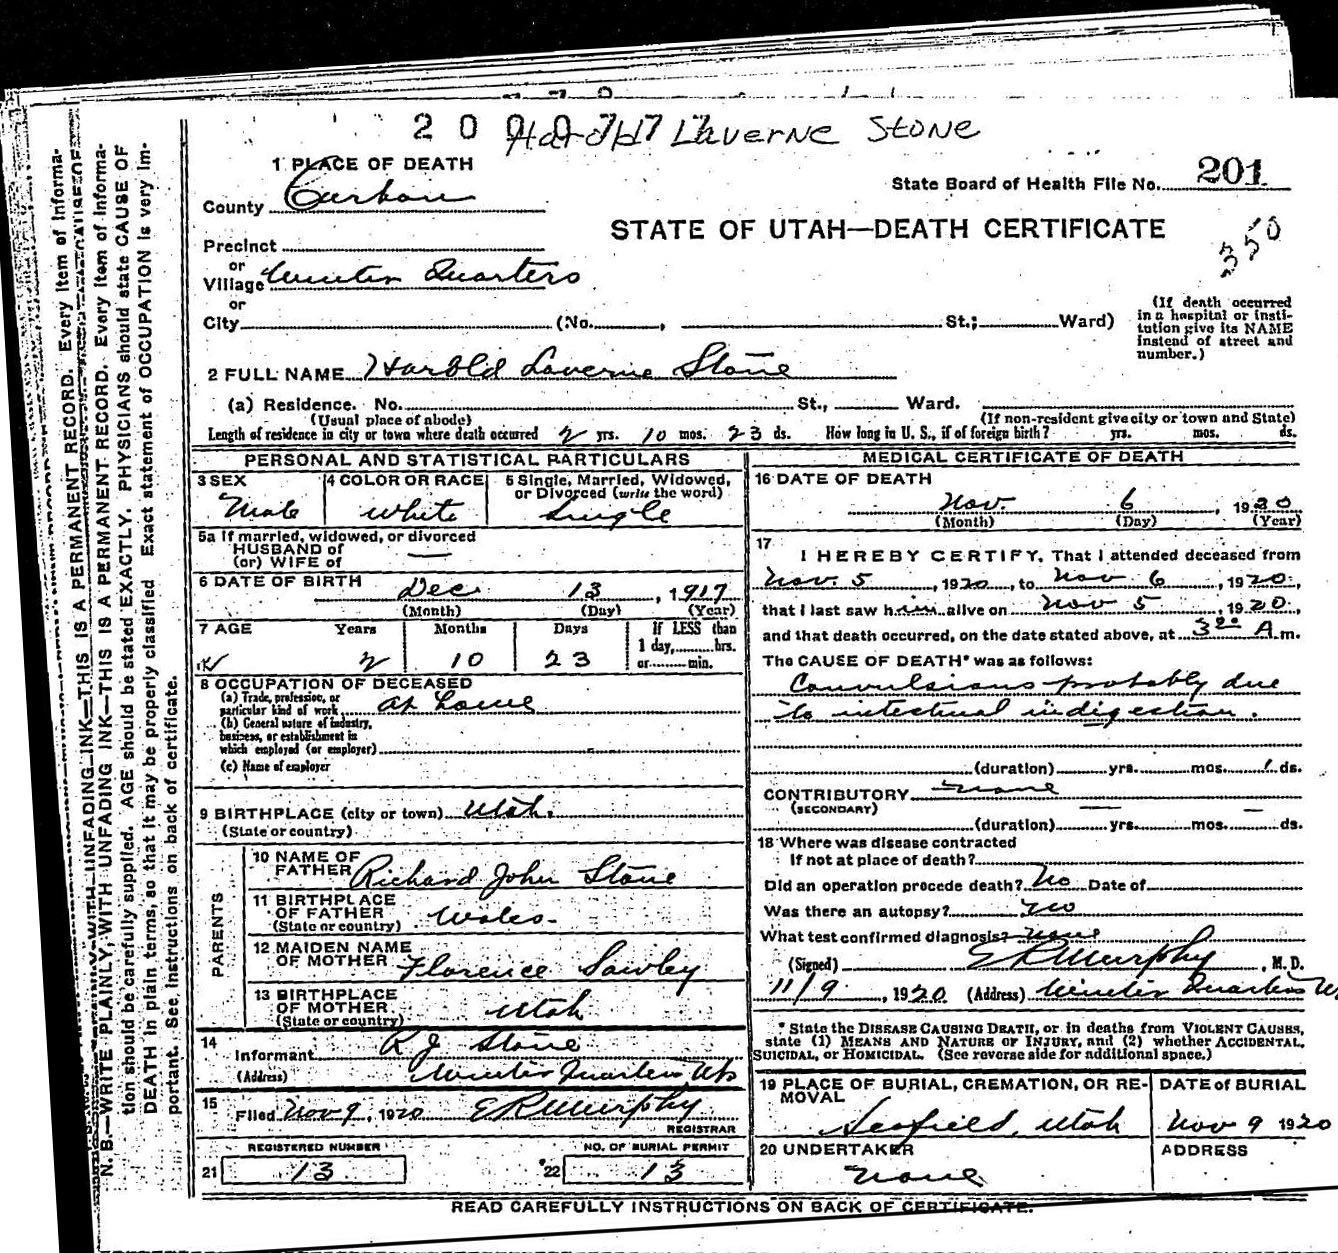 Harold Laverne Stone
1 PLACE OF DEATH
State Board of Health File No. 201
County Carbon
STATE OF UTAH—DEATH CERTIFICATE
350
Precinct
or
Village Winter Quarters
or
City (No. , St.; Ward)
(If death occurred in a hospital or institution give its NAME instead of street and number.)
2 FULL NAME Harold Laverne Stone
(a) Residence. No. St., Ward.
(Usual place of abode) (If non-resident give city or town and State)
Length of residence in city or town where death occurred 2 yrs. 10 mos. 23 ds. How long in U. S., if of foreign birth? yrs. mos. ds.
PERSONAL AND STATISTICAL PARTICULARS
3 SEX Male
4 COLOR OR RACE White
5 Single, Married, Widowed, or Divorced (write the word) Single
5a If married, widowed, or divorced
HUSBAND of
(or) WIFE of —
6 DATE OF BIRTH Dec 13, 1917
(Month) (Day) (Year)
7 AGE Years Months Days If LESS than
1 day, hrs.
or min.
2 10 23
8 OCCUPATION OF DECEASED
(a) Trade, profession, or particular kind of work at home
(b) General nature of industry, business, or establishment in which employed (or employer)
(c) Name of employer
9 BIRTHPLACE (city or town) Utah.
(State or country)
PARENTS
10 NAME OF FATHER Richard John Stone
11 BIRTHPLACE OF FATHER (State or country) Wales.
12 MAIDEN NAME OF MOTHER Florence Sawley
13 BIRTHPLACE OF MOTHER (State or country) Utah
14 Informant R J Stone
(Address) Winter Quarters Ut
15 Filed Nov 9, 1920 E R Murphy
REGISTRAR
REGISTERED NUMBER NO. OF BURIAL PERMIT
21 13 22 13
MEDICAL CERTIFICATE OF DEATH
16 DATE OF DEATH
Nov. 6, 1920
(Month) (Day) (Year)
17 I HEREBY CERTIFY, That I attended deceased from
Nov. 5, 1920, to Nov 6, 1920,
that I last saw him alive on Nov 5, 1920,
and that death occurred, on the date stated above, at 3 A m.
The CAUSE OF DEATH* was as follows:
Convulsions probably due
to intestinal indigestion.
(duration) yrs. mos. 1 ds.
CONTRIBUTORY None
(SECONDARY)
(duration) yrs. mos. ds.
18 Where was disease contracted
If not at place of death?
Did an operation precede death? No Date of
Was there an autopsy? No
What test confirmed diagnosis? None
(Signed) E R Murphy, M. D.
11/9, 1920 (Address) Winter Quarters
* State the DISEASE CAUSING DEATH, or in deaths from VIOLENT CAUSES, state (1) MEANS AND NATURE OF INJURY, and (2) whether ACCIDENTAL, SUICIDAL, or HOMICIDAL. (See reverse side for additional space.)
19 PLACE OF BURIAL, CREMATION, OR REMOVAL DATE of BURIAL
Scofield, Utah Nov 9 1920
20 UNDERTAKER ADDRESS
None
READ CAREFULLY INSTRUCTIONS ON BACK OF CERTIFICATE.
N. B.—WRITE PLAINLY, WITH UNFADING INK—THIS IS A PERMANENT RECORD. Every item of information should be carefully supplied. AGE should be stated EXACTLY. PHYSICIANS should state CAUSE OF DEATH in plain terms, so that it may be properly classified. Exact statement of OCCUPATION is very important. See instructions on back of certificate.